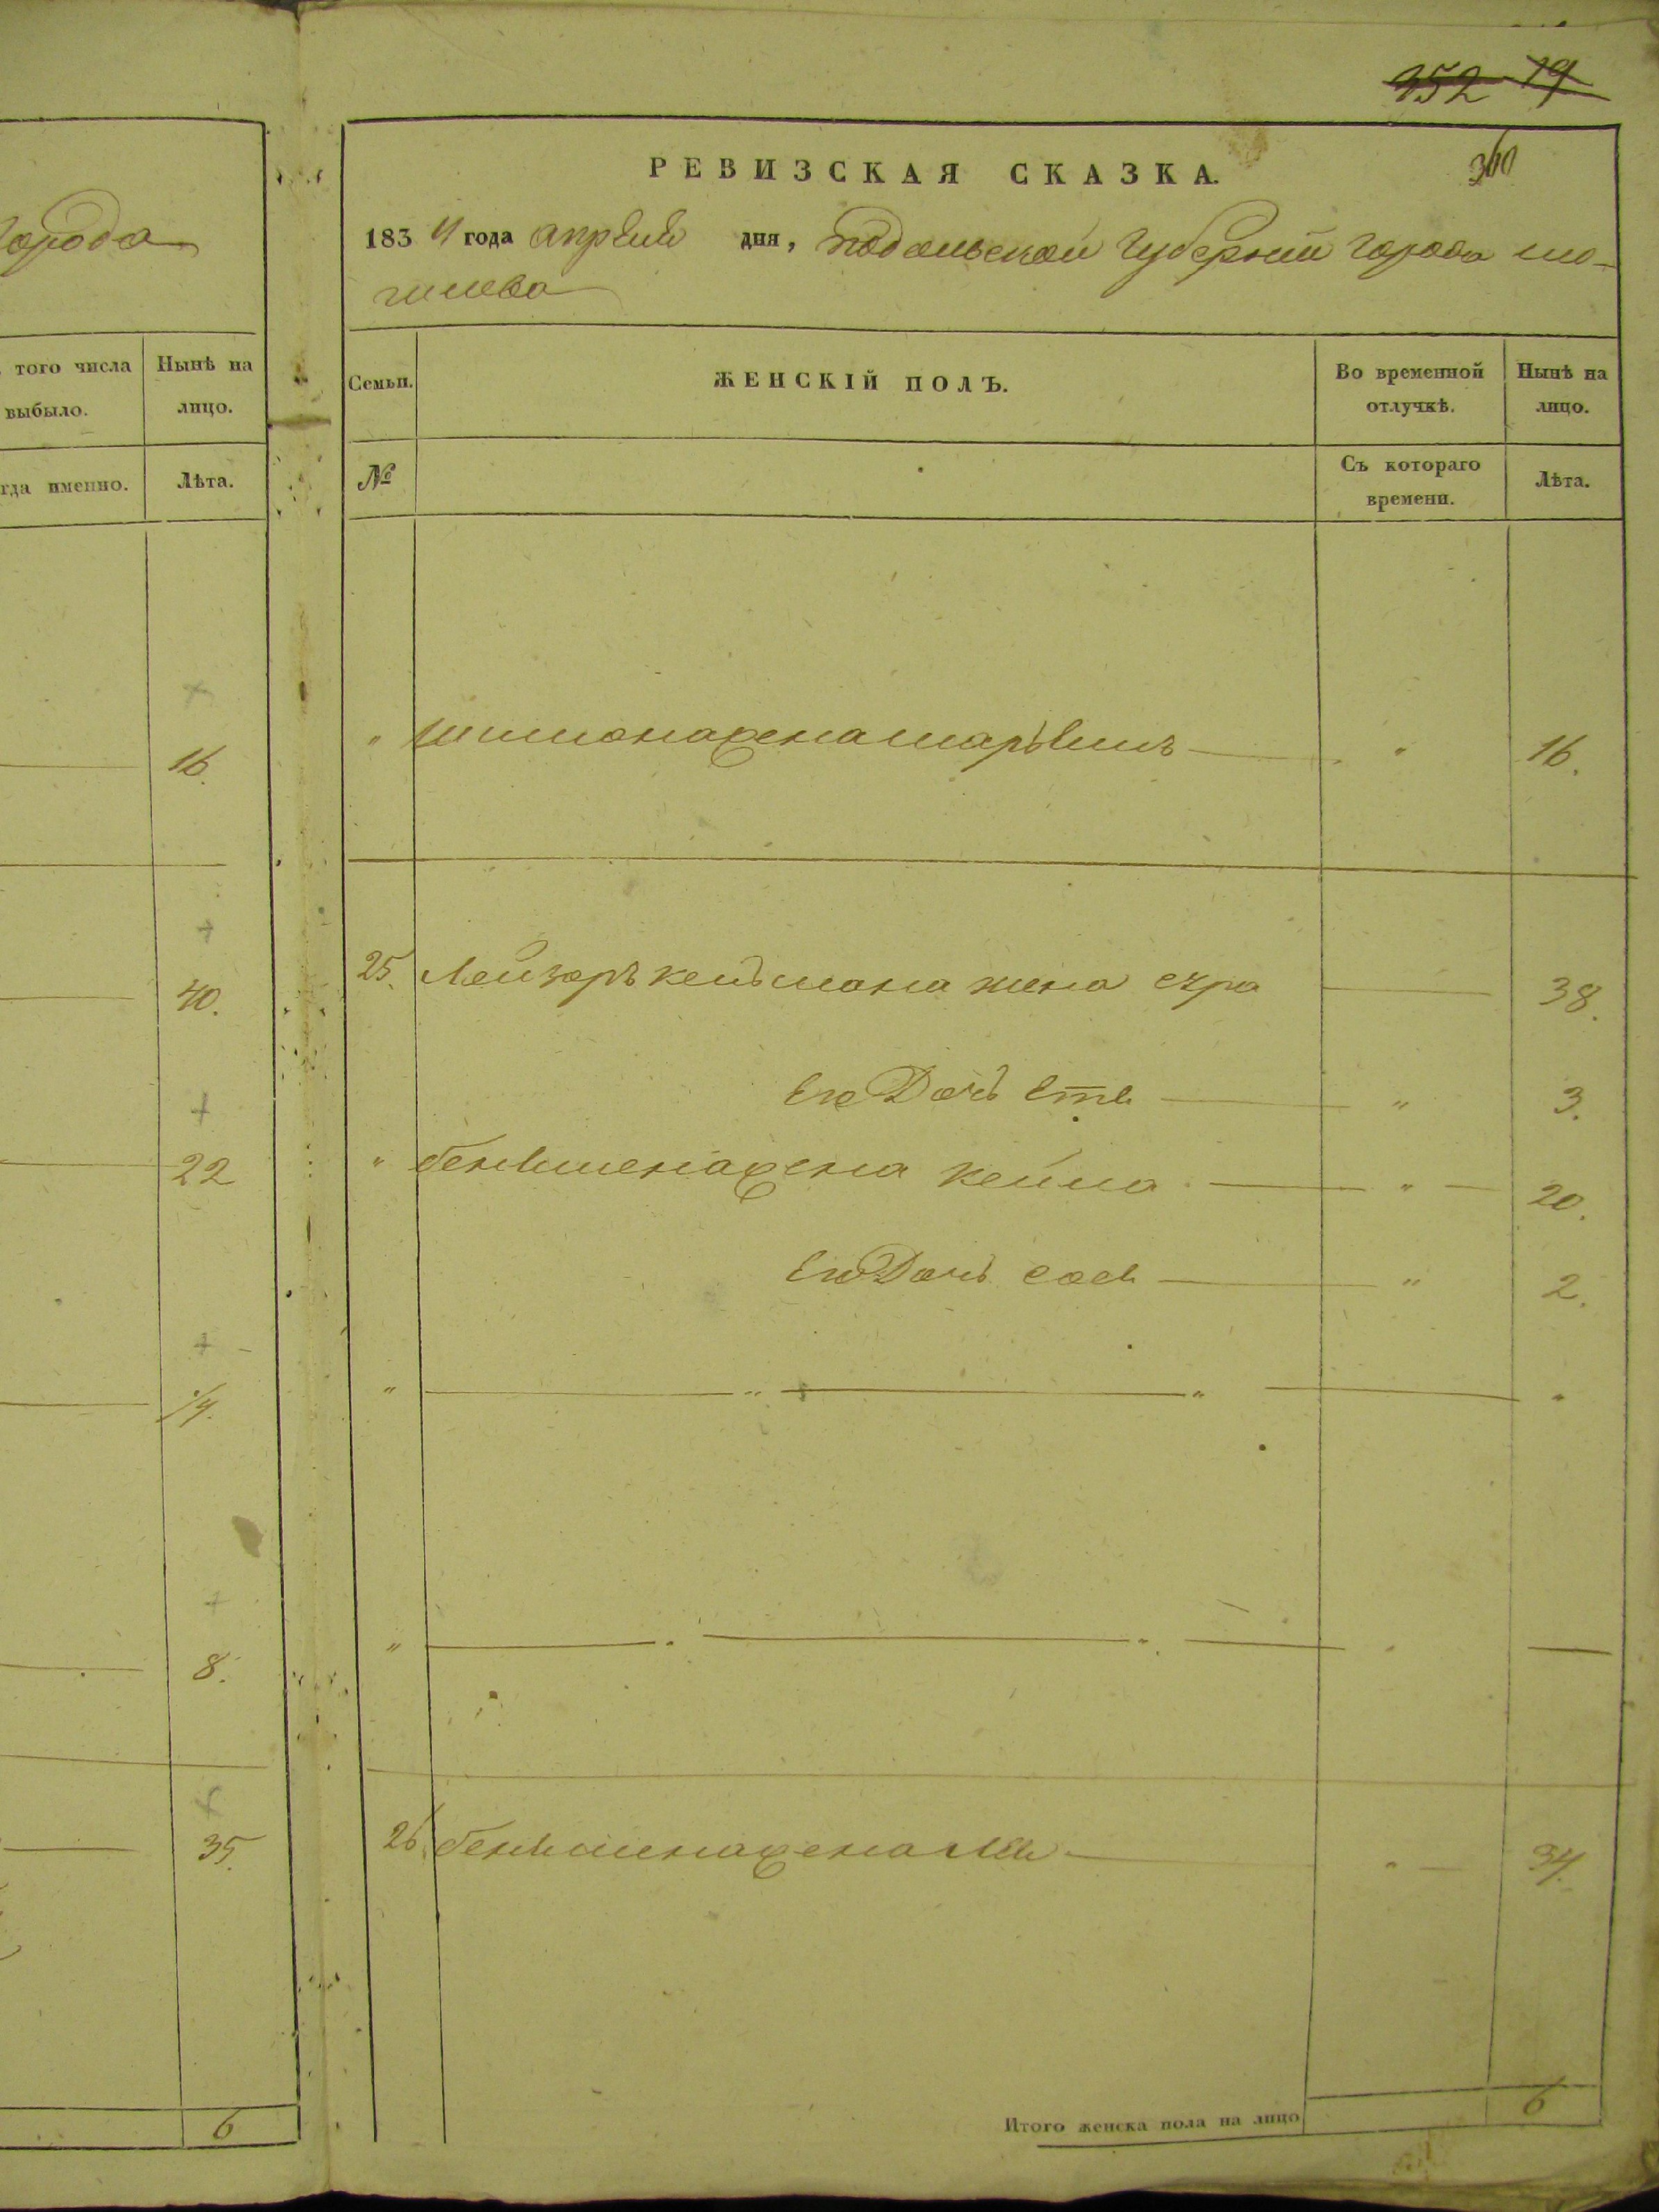 352 19
города
РЕВИЗСКАЯ СКАЗКА.
360
1834 года апреля дня, подольской губернии города мо-
гилева
того числа
выбыло.
Нынѣ на
лицо.
Семьи.
ЖЕНСКІЙ ПОЛЪ.
Во временной
отлучкѣ.
Нынѣ на
лицо.
гда именно.
Лѣта.
№
Съ котораго
времени.
Лѣта.
16.
" шимона жена " 16.
40.
25. Лейзеръ жена 38.
Его Дочь Етя " 3.
22
" жена кейла " 20.
Его Дочь сося " 2.
14.
" " "
8.
" " "
35.
26. жена " 34.
6
Итого женска пола на лицо 6